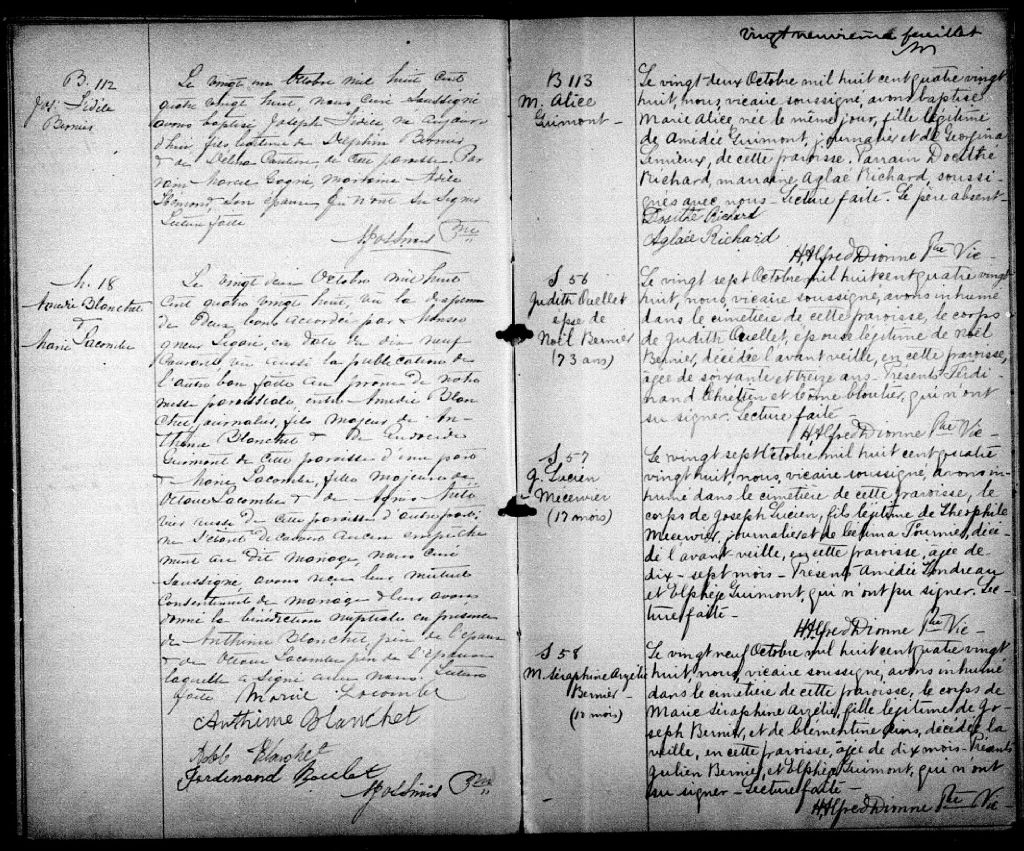 B. 112
Jos.
Bernier
Le vingt un Octobre mil huit cent
quatre vingt huit, nous curé soussigné
avons baptisé Joseph né aujour
d'hui fils légitime de Delphin Bernier
& de Cantin de cette paroisse. Par
rain Gagné, marraine Adèle
son épouse qui n'ont su signer
Lecture faite
Ptre
M. 18
Amédée Blanchet
&
Marie Lacombe
Le vingt deux Octobre mil huit
cent quatre vingt huit, vu la dispense
de deux bans accordée par Monsei
gneur en date du dix neuf
courant, vu aussi la publication de
l'autre ban faite au prône de notre
messe paroissiale, entre Amédée Blan
chet, journalier, fils majeur de An-
thime Blanchet & de
Guimont de cette paroisse d'une part
& Marie Lacombe, fille majeure de
Octave Lacombe & de Agnès
de cette paroisse d'autre part
ne s'étant découvert aucun empêche
ment au dit mariage, nous curé
soussigné, avons reçu leur mutuel
consentement de mariage & leur avons
donné la bénédiction nuptiale en présence
de Anthime Blanchet père de l'époux
& de Octave Lacombe père de l'épouse
laquelle a signé avec nous. Lecture
faite Marie Lacombe
Anthime Blanchet
Blanchet
Ferdinand Boulet
Ptre
vingt neuvième feuillet
B 113
M. Alice
Guimont -
Le vingt-deux Octobre mil huit cent quatre vingt
huit, nous, vicaire soussigné, avons baptisé
Marie Alice née le même jour, fille légitime
de Amédée Guimont, journalier et de Georgina
Lemieux, de cette paroisse. Parrain Dosithé
Richard, marraine Aglaé Richard, soussi-
gnés avec nous - Lecture faite. Le père absent -
Dosithé Richard
Aglaée Richard
H. Alfred Dionne Ptre Vic -
S 56
Judith Ouellet
épse de
Noël Bernier
(73 ans)
Le vingt sept Octobre mil huit cent quatre vingt
huit, nous, vicaire soussigné, avons inhumé
dans le cimetière de cette paroisse, le corps
de Judith Ouellet, épouse légitime de Noël
Bernier, décédée l'avant veille, en cette paroisse,
âgée de soixante et treize ans - Présents Ferdi-
nand Chrétien et Côme Cloutier, qui n'ont
su signer. Lecture faite -
H. Alfred Dionne Ptre Vic -
S 57
J. Lucien
Mecenvier
(17 mois)
Le vingt sept Octobre mil huit cent quatre
vingt huit, nous, vicaire soussigné, avons in-
humé dans le cimetière de cette paroisse, le
corps de Joseph Lucien, fils légitime de Théophile
Mecenvier, journalier et de Fournier, décé-
dé l'avant veille, en cette paroisse, âgé de
dix-sept mois - Présents Amédée
et Elphège Guimont, qui n'ont pu signer. Lec-
ture faite -
H. Alfred Dionne Ptre Vic -
S 58
M. Séraphine Arzélie
Bernier -
(10 mois)
Le vingt neuf Octobre mil huit cent quatre vingt
huit, nous, vicaire soussigné, avons inhumé
dans le cimetière de cette paroisse, le corps de
Marie Séraphine Arzélie, fille légitime de Jo-
seph Bernier, et de Clémentine décédée la
veille, en cette paroisse, âgée de dix mois - Présents
Julien Bernier, et Elphège Guimont, qui n'ont
su signer - Lecture faite -
H. Alfred Dionne Ptre Vic -